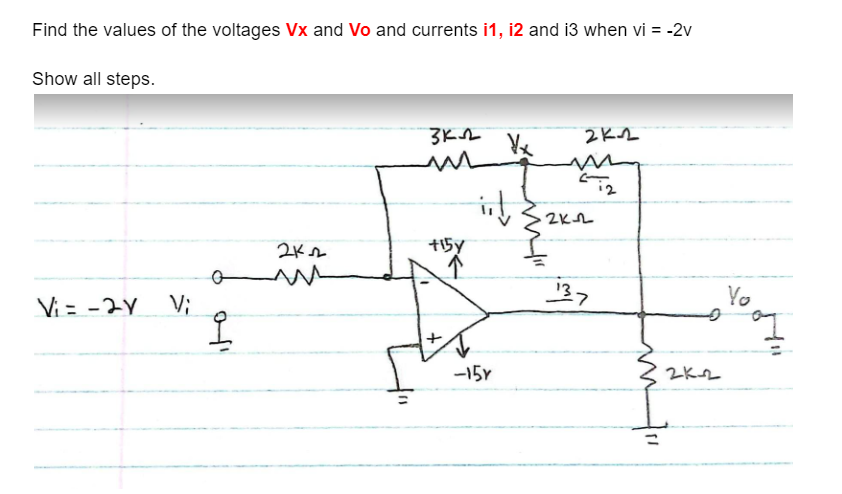 Find the values of the voltages Vx and Vo and currents i1, i2 and i3 when vi = -2v
Show all steps.
3KΩ
Vx
2KΩ
i2
i1
2KΩ
2KΩ
+15V
-
i3
Vo
Vi = -2V Vi
+
-15V
2KΩ